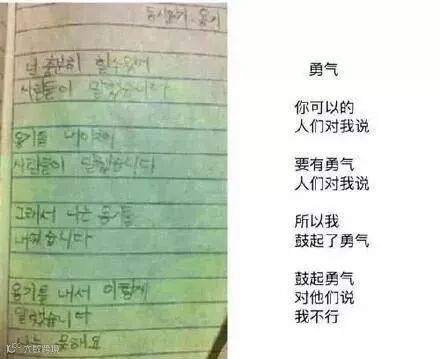 동시짓기 - 용기
넌 충분히 할수있어
사람들이 말했습니다
용기를 내야해
사람들이 말했습니다
그래서 나는 용기를
내였습니다
용기를 내서 이렇게
말했습니다
나는 못해요
勇气
你可以的
人们对我说
要有勇气
人们对我说
所以我
鼓起了勇气
鼓起勇气
对他们说
我不行